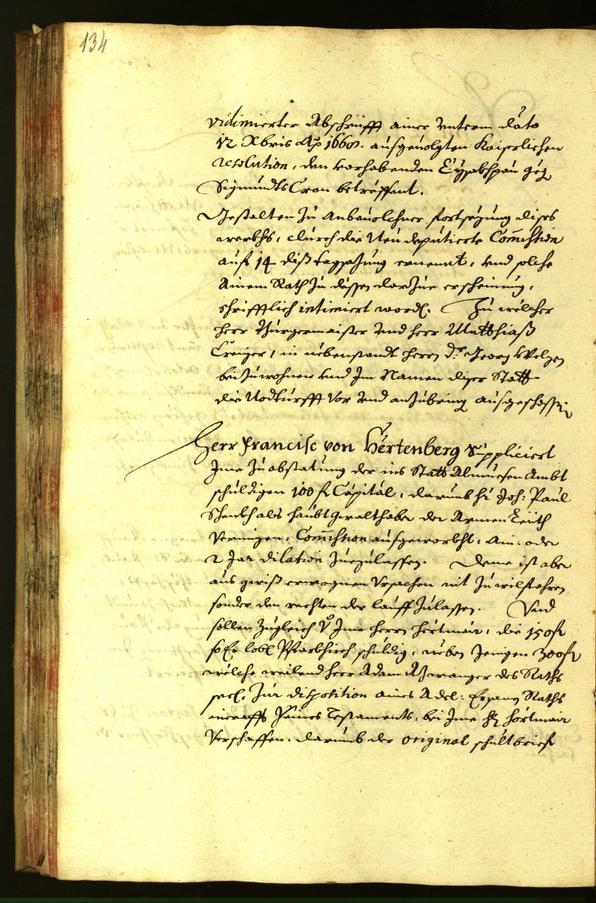 134
vidimierter Abschrifft ainer unterm dato
12 Xbris Aõ 1660. außgeuolgten Kaiserlichen
resolution, den vorhabenden
Sigmundts Cron betreffent.
Gestalten zu anbeuolchner fortsezung dises
werckhs, durch die Neu deputierte Com̃ission
auf 14 diß tagsazung ernennt, und solche
ainem Rath zu dessen darzue erscheinung,
schrifftlich intimiert word. Zu welcher
herr Burgermaister und herr Matthiaß
Kreizer, in nebenstandt herrn Dr Georg
beizuwohnen und im Namen diser Statt
die Nodturfft vor und anzubring außgeschossen
Herr Francisc von Hertenberg Suppliciert
Ime zu abstatung der ins Statt Almuesen Ambt
schuldigen 100 f Capital, darumb Hr Joh: Paul
Schenkh als haubt gewalthaber der Armen Leith
Com̃ission außgeworckht, ain: oder
2 Jar dilation zuezulassen. Deme ist aber
aus gewiß erwognen Ursachen nit zu wilfahren
sonder den rechten der lauff zulassen. Und
sollen zugleich Ime herrn Hörtmair, die 150 f
so Er lobl Pfarrkhirch schuldig, neben Jenigen 300 f
welche weilend herr Adam des Raths
seel. Zur disposition aines Adel: Ersamen Raths
innhalt seines Testaments, bei Ime Hr Hörtmair
verschaffen, darumb der original schultbrief